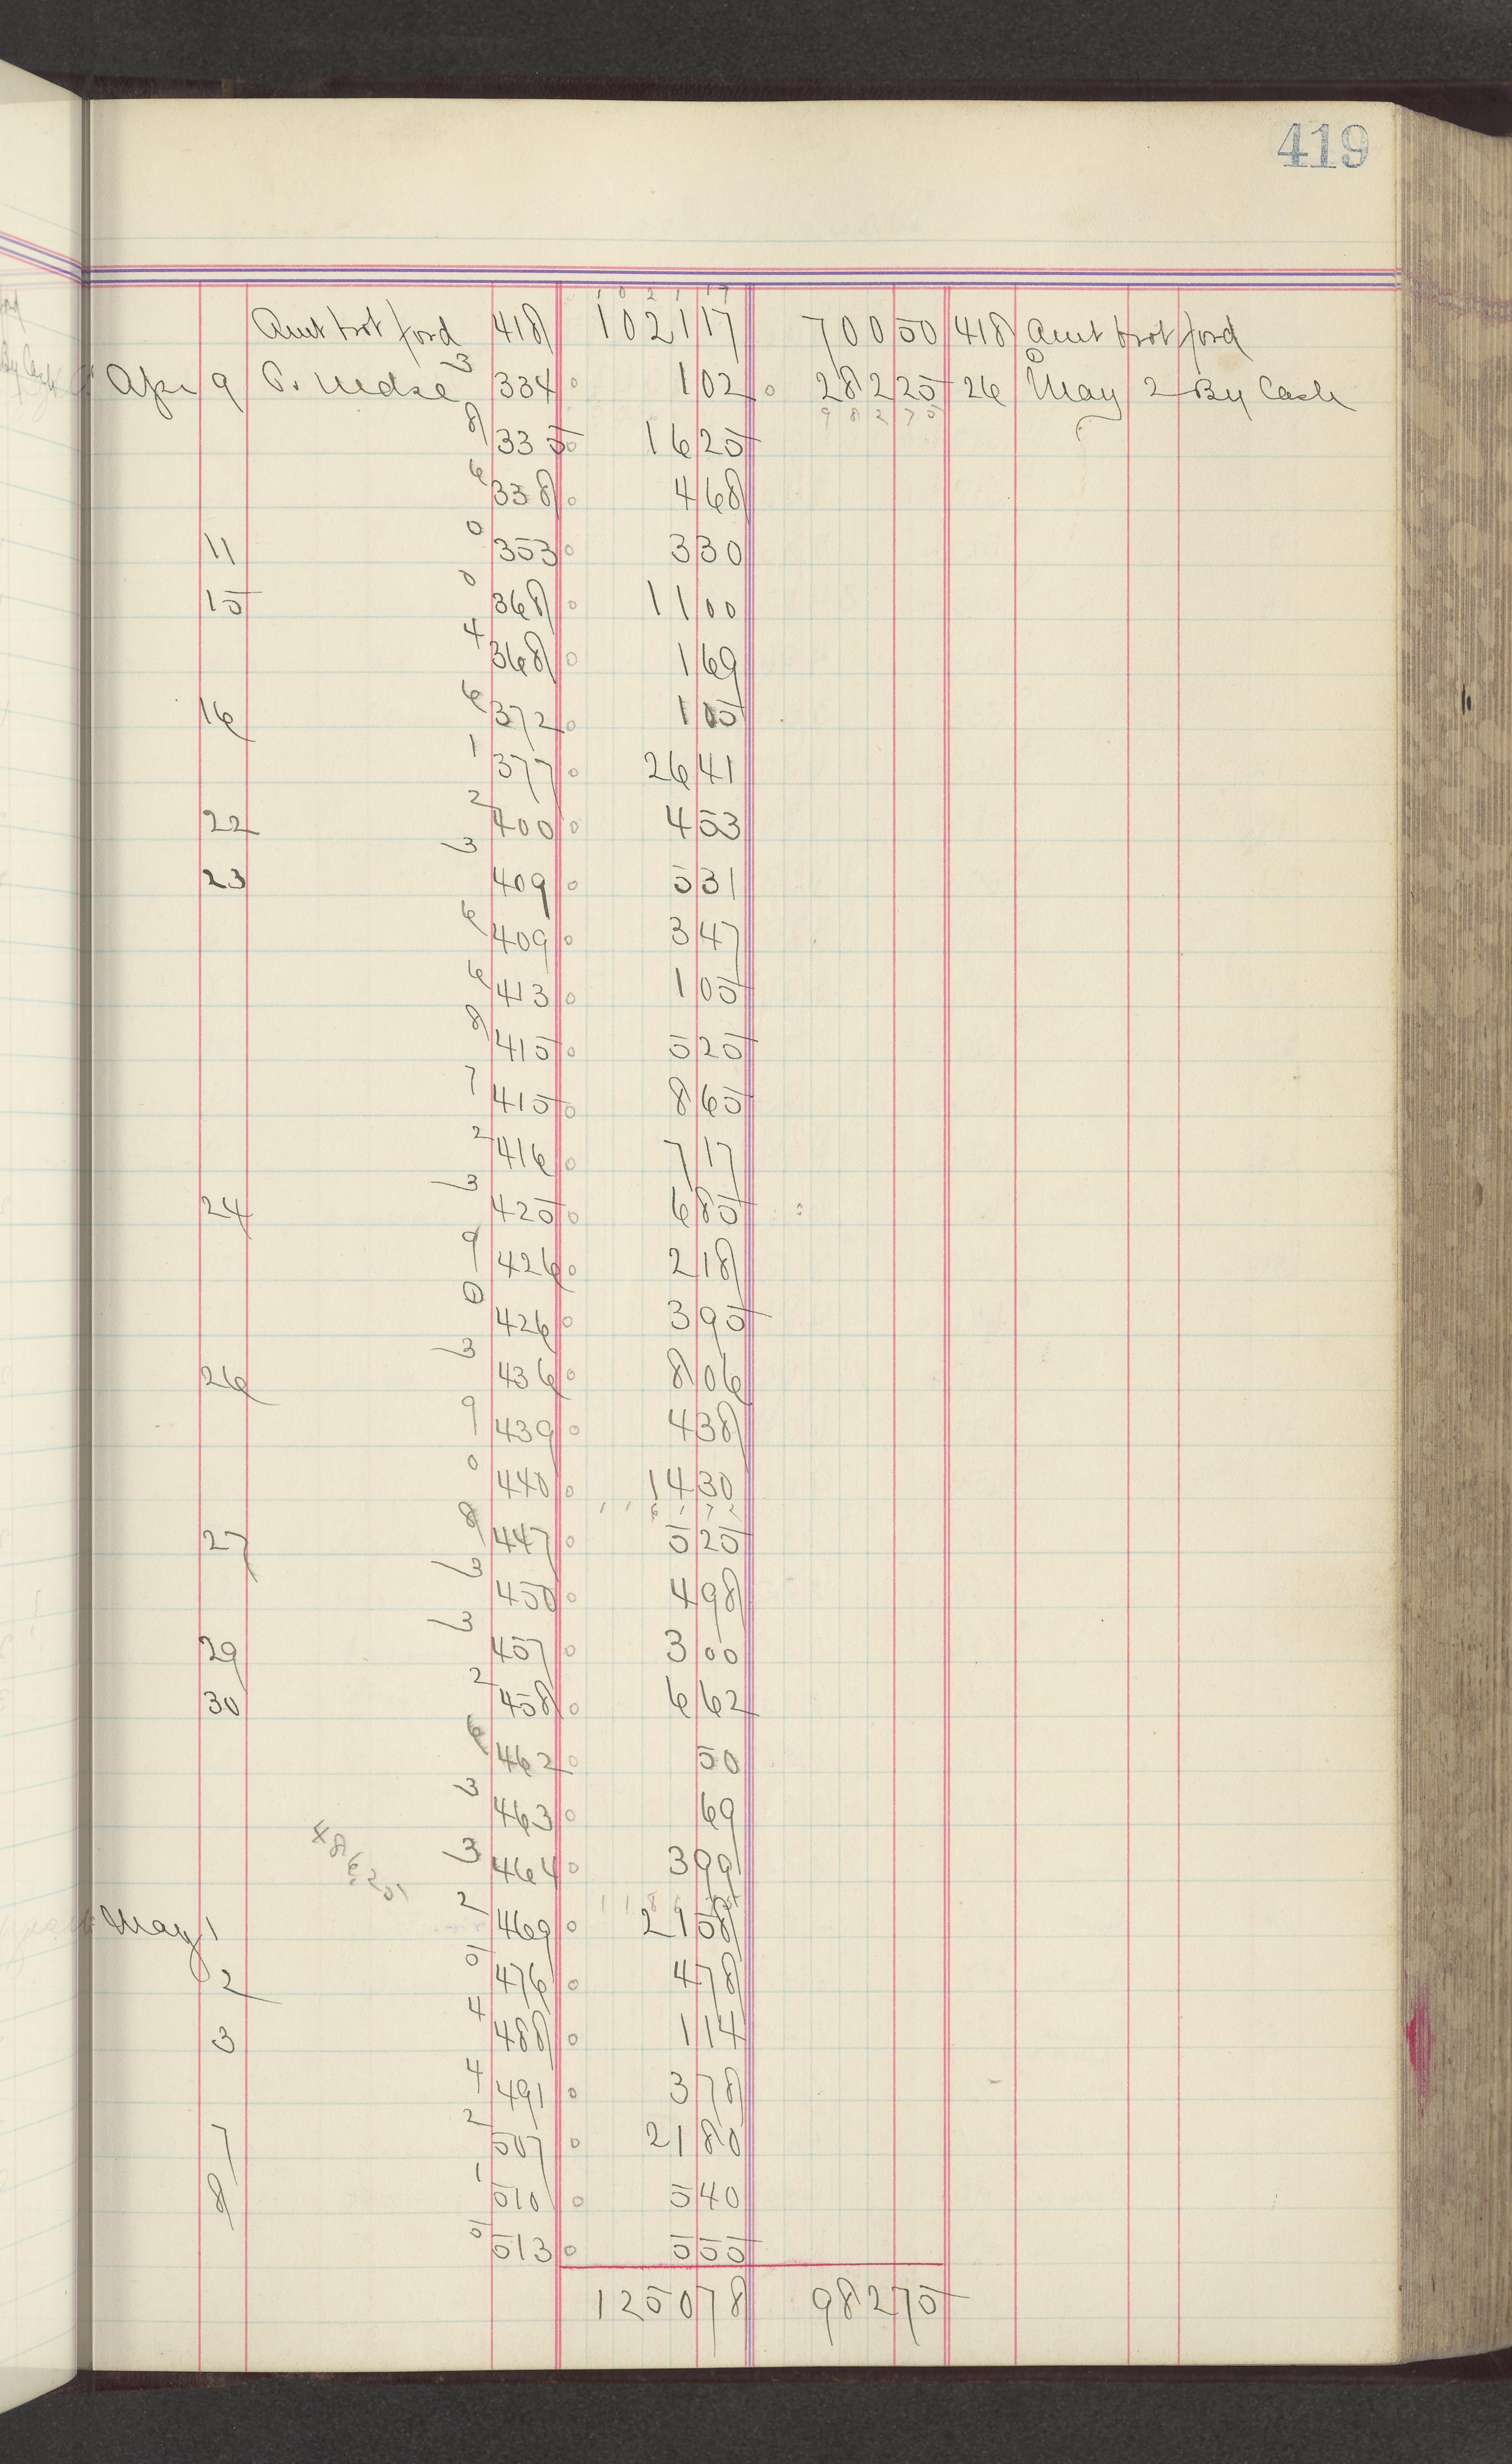 419
Amt brot ford 418 1021 17 700 50 418 Amt brot ford
Apr 9 3 334 1 02 282 25 26 May 2 By Cash
8 335 16 25 982 75
6 338 4 68
11 0 353 3 30
15 0 368 11 00
4 368 1 69
16 6 372 1 05
1 377 26 41
22 2 400 4 53
23 3 409 5 31
6 409 3 47
6 413 1 05
8 415 5 25
7 415 8 65
2 416 7 17
24 3 425 6 85
9 426 2 18
0 426 3 95
26 3 436 8 06
9 439 4 38
0 440 14 30
27 8 447 5 25
3 450 4 98
29 3 457 3 00
30 2 458 6 62
6 462 50
3 463 69
3 464 3 99
May 1 2 469 21 58
2 5 476 4 78
3 4 488 1 14
4 491 3 78
7 2 507 21 80
8 1 510 5 40
5 513 5 55
1250 78 982 75